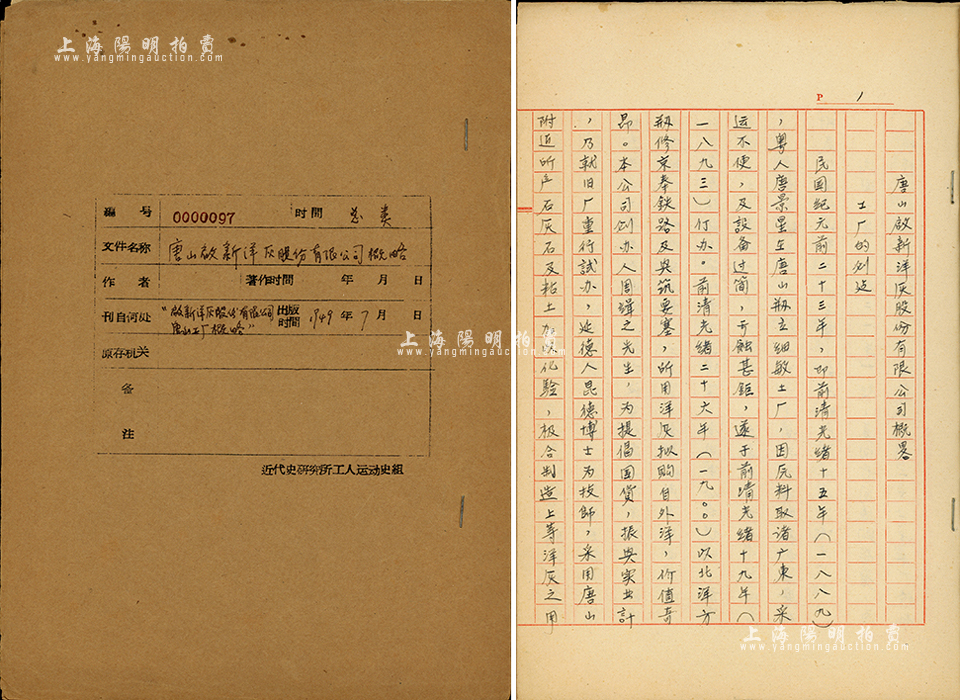 上海陽明拍賣
www.yangmingauction.com
編 号
0000097
时間
总类
文件名称
唐山啟新洋灰股份有限公司概略
作 者
著作时間
年 月 日
刊自何处
"啟新洋灰股份有限公司
唐山工厂概略"
出版
时間
1949 年 7 月 日
原存机关
备
注
近代史研究所工人运动史組
P 1
唐山啟新洋灰股份有限公司概畧
土厂的创建
民国纪元前二十三年，即前清光绪十五年（一八八九）
，粤人唐景星在唐山刱立细敏土厂，因灰料取诸广東，采
运不便，及設备过简，亏蝕甚鉅，遂于前清光緒十九年（
一八九三）付办。前清光緒二十六年（一九〇〇）以北洋方
刱修京奉鉄路及興筑要塞，所用洋灰拟购自外洋，价值奇
昂。本公司创办人周缉之先生，为提倡国貨，振興实业計
，乃就旧厂重行試办，延德人昆德博士为技師，采用唐山
附近所产石灰石及粘土加以化驗，极合制造上等洋灰之用
上海陽明拍賣
www.yangmingauction.com
上海陽明拍賣
www.yangmingauction.com